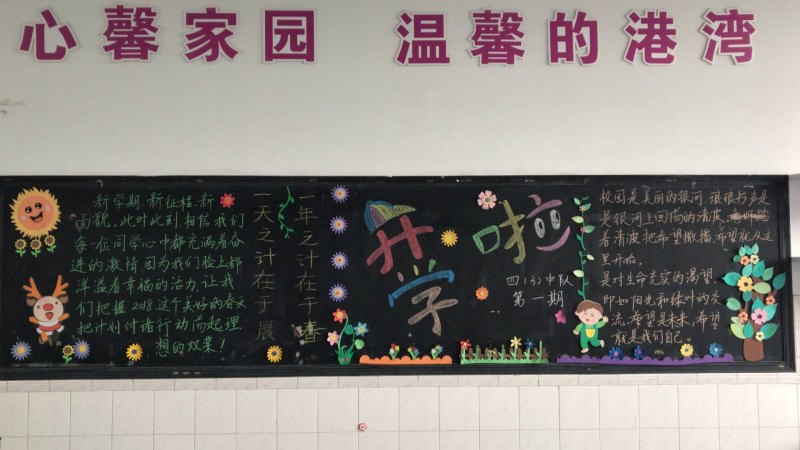 心馨家园 温馨的港湾
新学期.新征程.新
面貌.此时此刻相信我们
每一在同学心中都充满着奋
进的激情因为我们脸上都
洋溢着幸福的活力.让我
们把握2018这个美好的春天
把计划付诸行动.向起理
想的双桨!
一天之计在于晨
一年之计在于春
开学啦
四(3)中队
第一期
校园是美丽的银河.琅琅书声是
是银河上回荡的清波
着清波.把希望撒播.希望就从这
里开始。
是对生命充实的渴望,
即如阳光和绿叶的交
流.希望是未来,希望
就是我们自己。